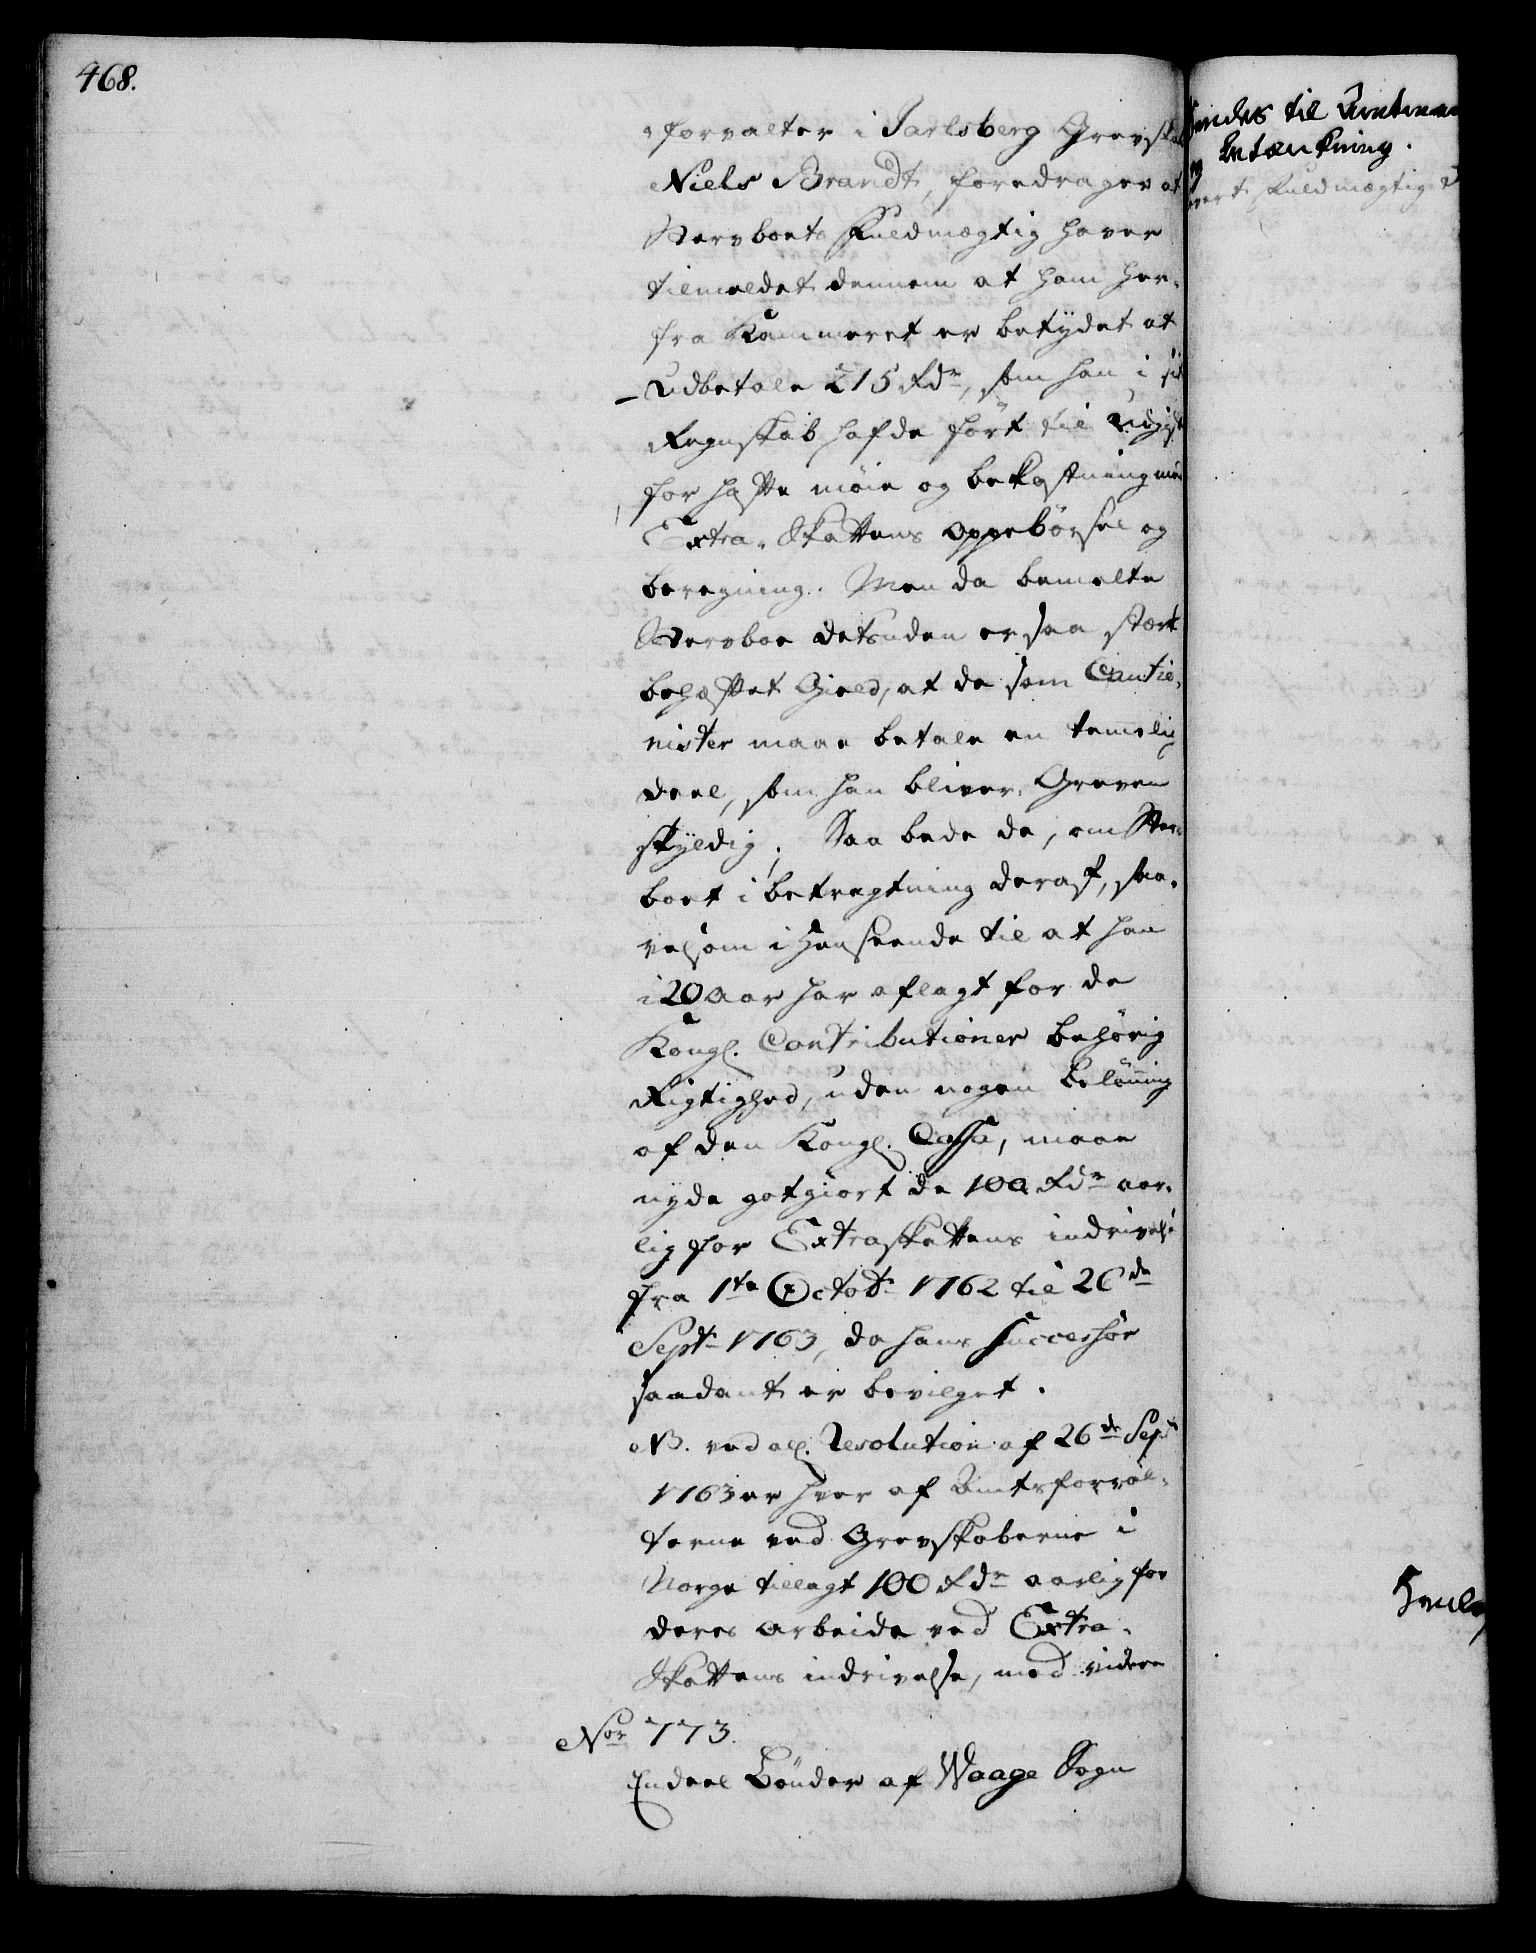 468.
forvalter i Jarlsberg Grevska
Niels Brandt, foredrager at
Stervboets Fuldmægtig haver
tilmeldet dennem at ham her-
fra Kammeret er betydet at
Udbetale 215 Rdr, som han i sit
Regnskab hafde ført til Udgift
for hafte møie og bekostning med
Extra-Skattens oppebørsel og
beregning. Men da bemelte
Stervboe desuden er saa stærk
behæftet Gield, at de som Cautio-
nister maae betale en temmelig
deel, som han bliver Greven
skyldig; Saa bede de, om Sterv-
boet i betragtning deraf, saa-
velsom i Henseende til at han
i 20 Aar har aflagt for de
Kongl. Contributioner behørig
Rigtighed, uden nogen belønning
af den Kongl. Cassa, maae
nyde gotgiort de 100 Rdr aar-
lig for Extraskattens indrivelse
fra 1te Octobr 1762 til 26de
Septr 1763, da hans Successor
saadant er bevilget.
NB. ved all. Resolution af 26de Sept
1763 er hver af Amtsforval-
terne ved Grevskaberne i
Norge tillagt 100 Rdr aarlig for
deres arbeide ved Extra-
Skattens indrivelse, med videre
Nor 773.
Endeel Bønder af Waage Sogn
sendes til
betænkning.
Fuldmægtig